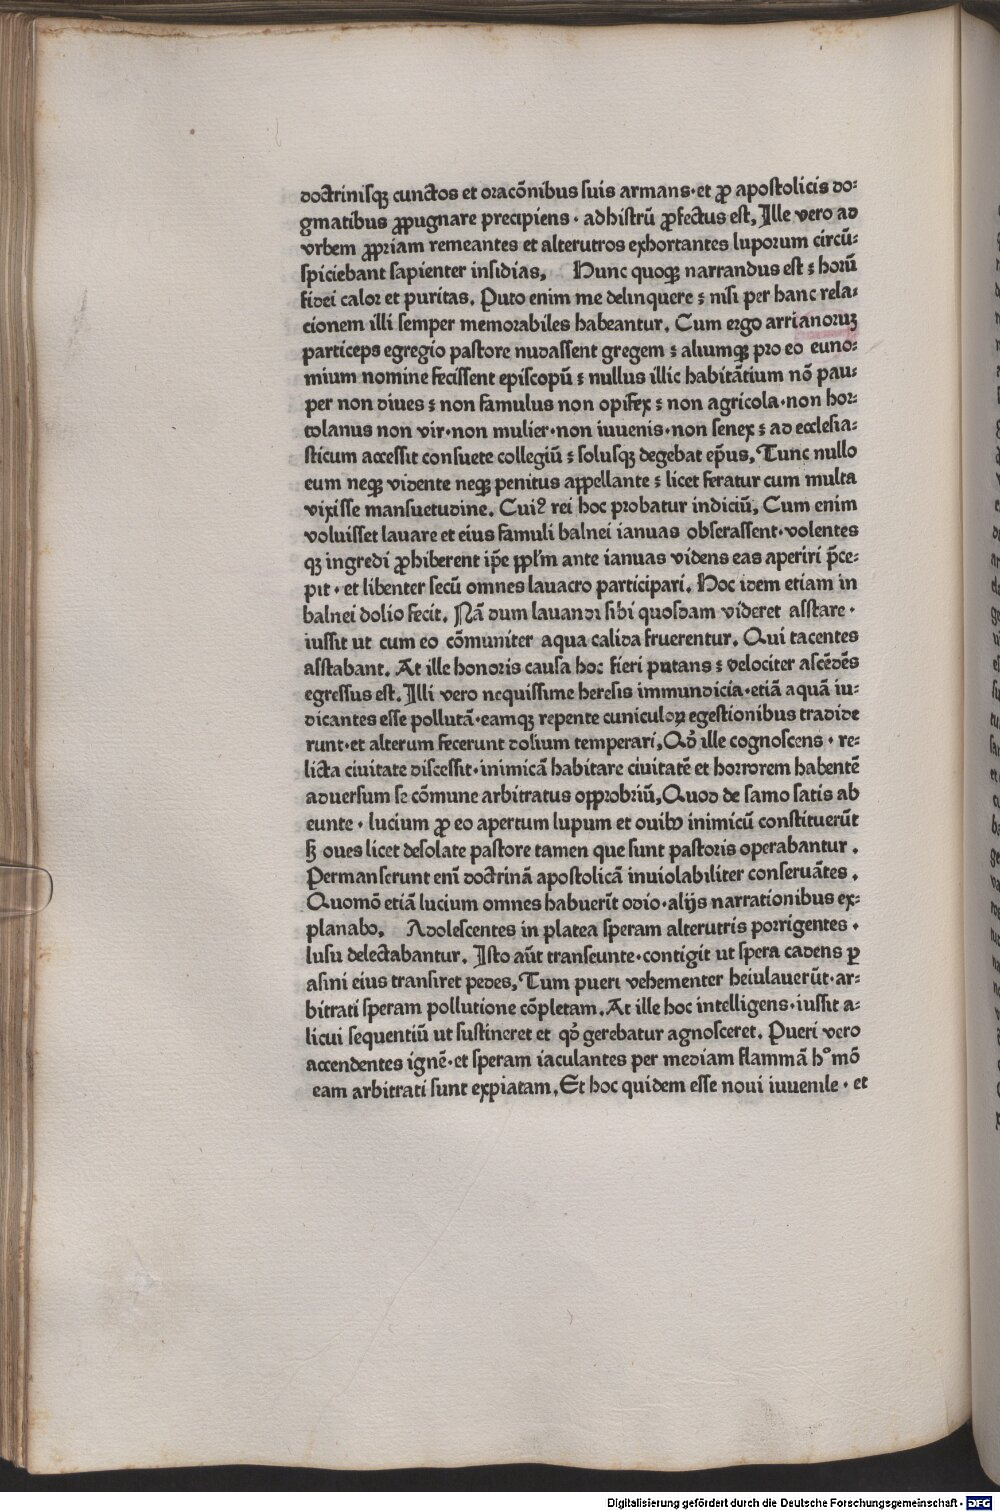 doctrinisqꝫ cunctos et oracõnibus suis armans·et ꝓ apostolicis do⸗
gmatibus ꝓpugnare precipiens · ad histrũ ꝓfectus est, Ille vero ad
vrbem ꝓpriam remeantes et alterutros exhortantes luporum circũ⸗
spiciebant sapienter insidias, Nunc quoqꝫ narrandus est : horũ
fidei calor et puritas. Puto enim me delinquere : nisi per hanc rela⸗
cionem illi semper memorabiles habeantur. Cum ergo arrianoruꝫ
particeps egregio pastore nudassent gregem : aliumqꝫ pro eo euno⸗
mium nomine fecissent episcopũ : nullus illic habitãtium nõ pau⸗
per non diues : non famulus non opifex : non agricola·non hor⸗
tolanus non vir·non mulier·non iuuenis·non senex : ad ecclesia⸗
sticum accessit consuete collegiũ : solusqꝫ degebat ep̃us, Tunc nullo
eum neqꝫ vidente neqꝫ penitus appellante : licet feratur cum multa
vixisse mansuetudine. Cuiꝰ rei hoc probatur indiciũ, Cum enim
voluisset lauare et eius famuli balnei ianuas obserassent·volentes
qꝫ ingredi ꝓhiberent ip̃e ppl'm ante ianuas videns eas aperiri p̃ce⸗
pit · et libenter secũ omnes lauacro participari. Hoc idem etiam in
balnei dolio fecit. Nã dum lauandi sibi quosdam videret asstare ·
iussit ut cum eo cõmuniter aqua calida fruerentur. Qui tacentes
asstabant. At ille honoris causa hoc fieri putans : velociter ascẽdẽs
egressus est. Illi vero nequissime heresis immundicia·etiã aquã iu⸗
dicantes esse pollutã·eamqꝫ repente cuniculoꝝ egestionibus tradide
runt·et alterum fecerunt dolium temperari, Qd̕ ille cognoscens · re⸗
licta ciuitate discessit·inimicã habitare ciuitatẽ et horrorem habentẽ
aduersum se cõmune arbitratus opprobriũ, Quod de samo satis ab
eunte · lucium ꝓ eo apertum lupum et ouibꝰ inimicũ constituerũt
sꝫ oues licet desolate pastore tamen que sunt pastoris operabantur .
Permanserunt eni̅ doctrinã apostolicã inuiolabiliter conseruãtes .
Quomõ etiã lucium omnes habueri̅t odio·alijs narrationibus ex⸗
planabo, Adolescentes in platea speram alterutris porrigentes ·
lusu delectabantur. Isto aũt transeunte·contigit ut spera cadens ꝑ
asini eius transiret pedes, Tum pueri vehementer heiulauerũt·ar⸗
bitrati speram pollutione cõpletam. At ille hoc intelligens·iussit a⸗
licui sequentiũ ut sustineret et qd̕ gerebatur agnosceret. Pueri vero
accendentes ignẽ·et speram iaculantes per mediam flammã hᵒ mõ
eam arbitrati sunt expiatam, Et hoc quidem esse noui iuuenile · et
Digitalisierung gefördert durch die Deutsche Forschungsgemeinschaft - DFG